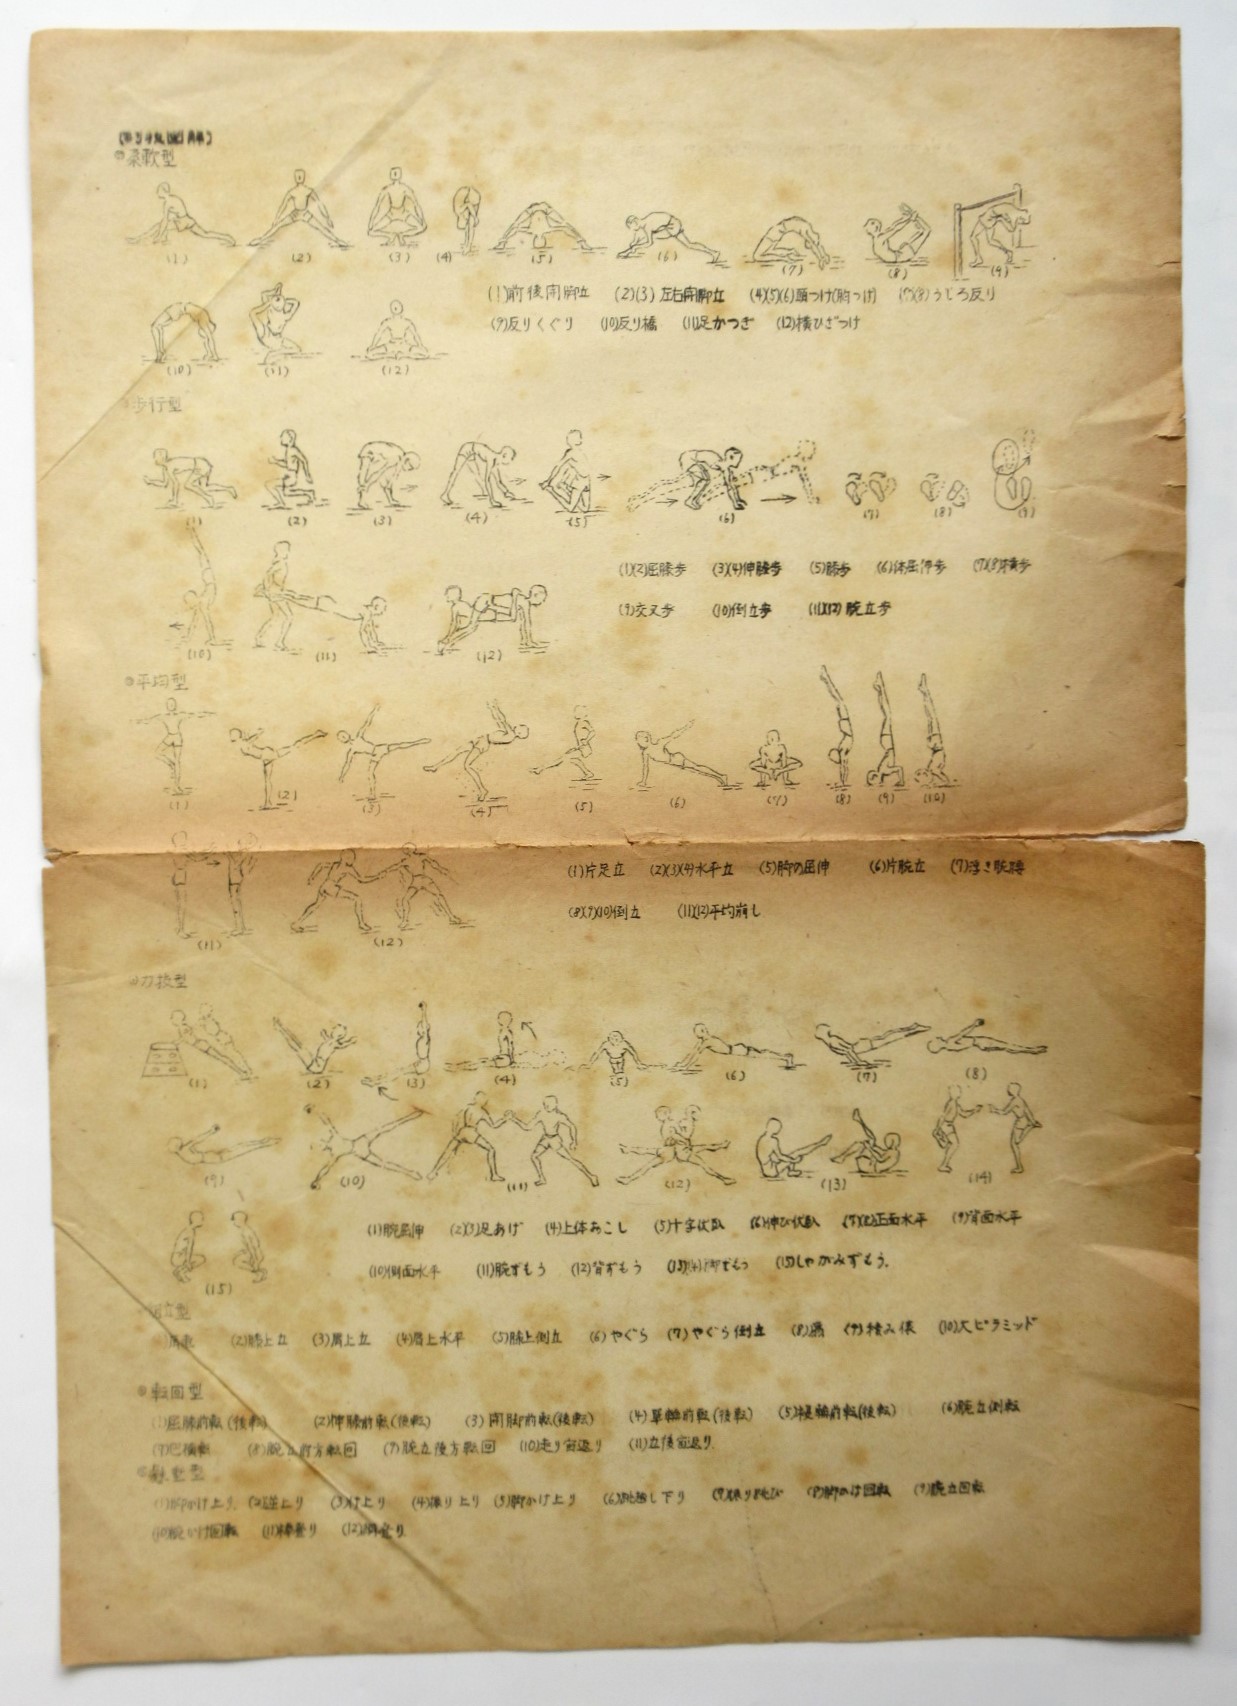 柔軟型
(1) (2) (3) (4) (5) (6) (7) (8) (9)
(1)前後開脚立 (2)(3)左右開脚立 (4)(5)(6)頭つけ(胸つけ) (7)(8)うしろ反り
(9)反りくぐり (10)反り橋 (11)足かつぎ (12)横ひざつけ
(10) (11) (12)
歩行型
(1) (2) (3) (4) (5) (6) (7) (8) (9)
(1)(2)屈膝歩 (3)(4)伸膝歩 (5)膝歩 (6)体屈伸歩 (7)(8)横歩
(9)交叉歩 (10)倒立歩 (11)(12)腕立歩
(10) (11) (12)
平均型
(1) (2) (3) (4) (5) (6) (7) (8) (9) (10)
(1)片足立 (2)(3)(4)水平立 (5)脚の屈伸 (6)片腕立 (7)浮き腕
(8)(9)(10)倒立 (11)(12)平均崩し
(11) (12)
型
(1) (2) (3) (4) (5) (6) (7) (8)
(9) (10) (11) (12) (13) (14)
(1)腕屈伸 (2)(3)足あげ (4)上体おこし (5)十字伏臥 (6)伸び伏臥 (7)(8)正面水平 (9)背面水平
(10)側面水平 (11)腕ずもう (12)背ずもう (13)(14)脚ずもう (15)しゃがみずもう.
(15)
型
(2)膝上立 (3)肩上立 (4)肩上水平 (5)膝上倒立 (6)やぐら (7)やぐら倒立 (8) (9)積み俵 (10)大ピラミッド
転回型
(1)屈膝前転(後転) (2)伸膝前転(後転) (3)開脚前転(後転) (4)単輪前転(後転) (5)複輪前転(後転) (6)腕立側転
(8)腕立前方転回 (7)腕立後方転回 (10)走り宙返り (11)立後宙返り.
懸垂型
(1)脚かけ上り. (2)逆上り (3)け上り (4)振り上り (5)脚かけ上り (6)跳越し下り (7)振り跳び (8)脚かけ回転 (9)腕立回転
(10)腕かけ回転 (11)棒登り (12)綱登り.